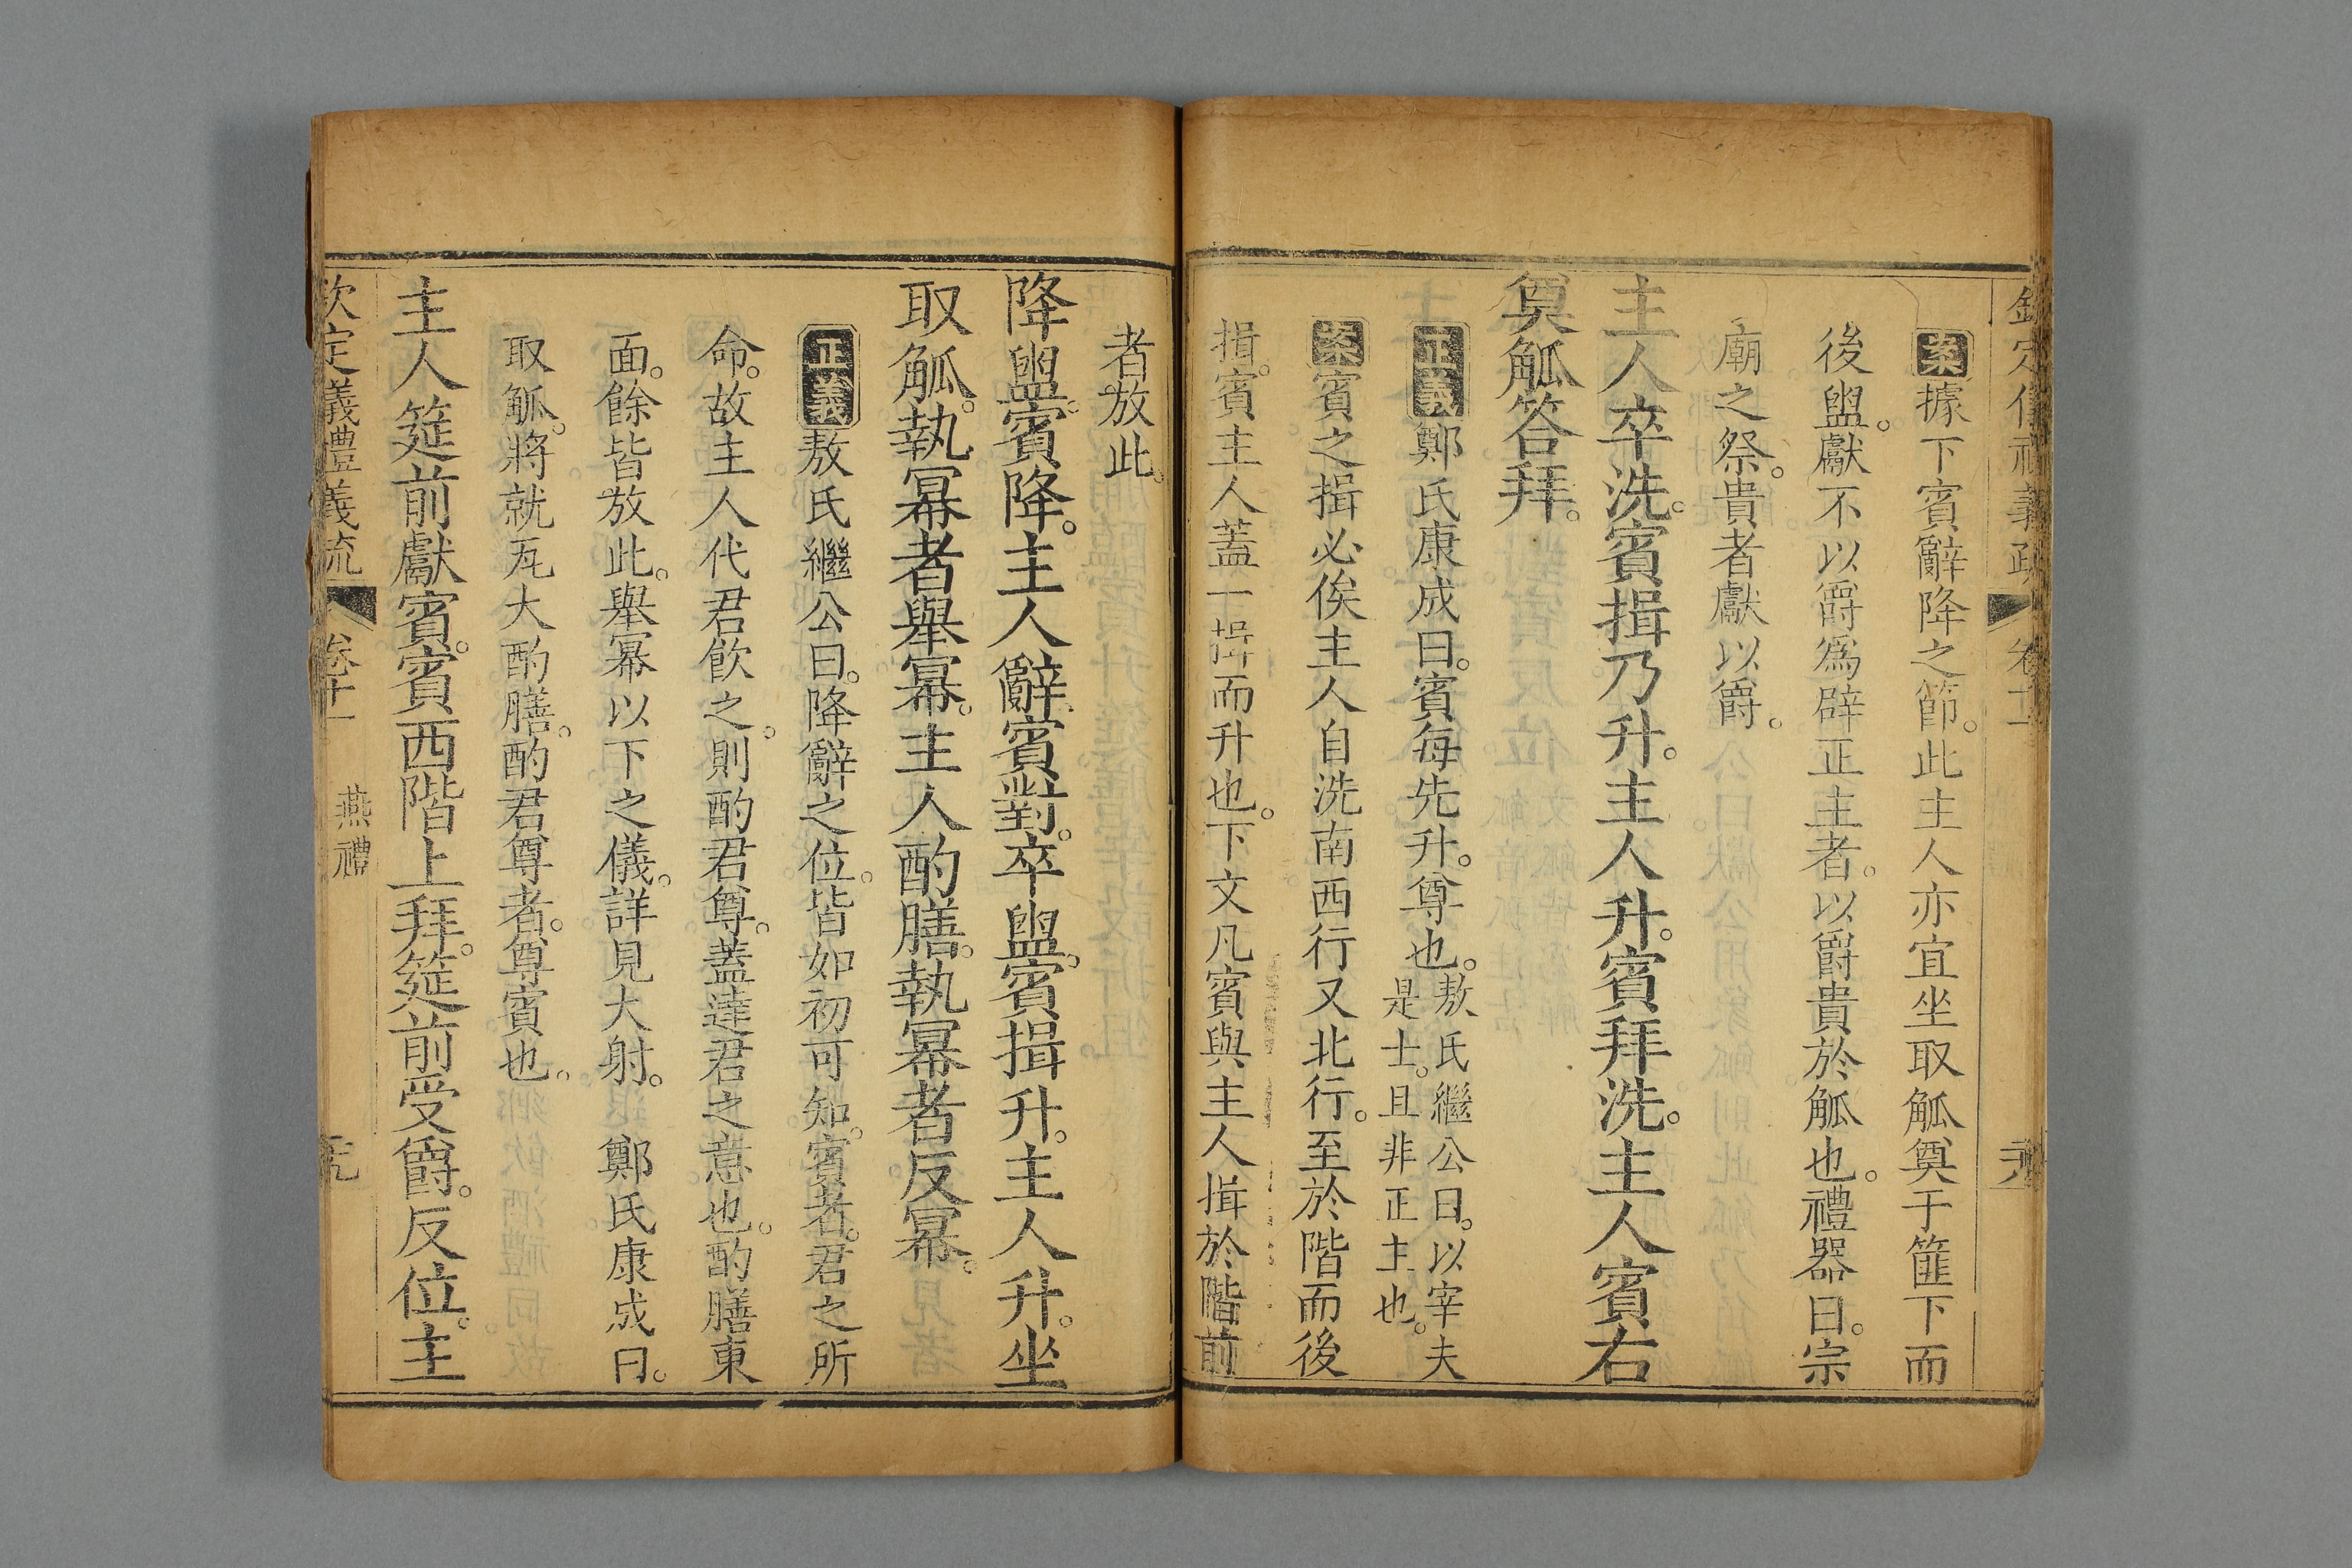 欽定儀禮義疏 卷十一
案據下賓辭降之節。此主人亦宜坐取觚奠于篚下而
後盥。獻不以爵爲辟正主者。以爵貴於觚也。禮器曰。宗
廟之祭。貴者獻以爵。
主人卒洗。賓揖乃升。主人升。賓拜洗。主人賓右
奠觚答拜。
正義鄭氏康成曰。賓每先升。尊也。敖氏繼公曰。以宰夫
是士。且非正主也。
案賓之揖必俟主人自洗南西行又北行。至於階而後
揖。賓主人蓋一揖而升也。下文凡賓與主人揖於階前
者放此。
降盥。賓降。主人辭。賓對。卒盥。賓揖升。主人升。坐
取觚。執冪者舉冪。主人酌膳。執冪者反冪。
正義敖氏繼公曰。降辭之位。皆如初可知。賓者。君之所
命。故主人代君飲之。則酌君尊。蓋達君之意也。酌膳東
面。餘皆放此。舉冪以下之儀。詳見大射。 鄭氏康成曰。
取觚。將就瓦大酌膳。酌君尊者。尊賓也。
主人筵前獻賓。賓西階上拜。筵前受爵。反位。主
欽定儀禮義疏 卷十一 燕禮